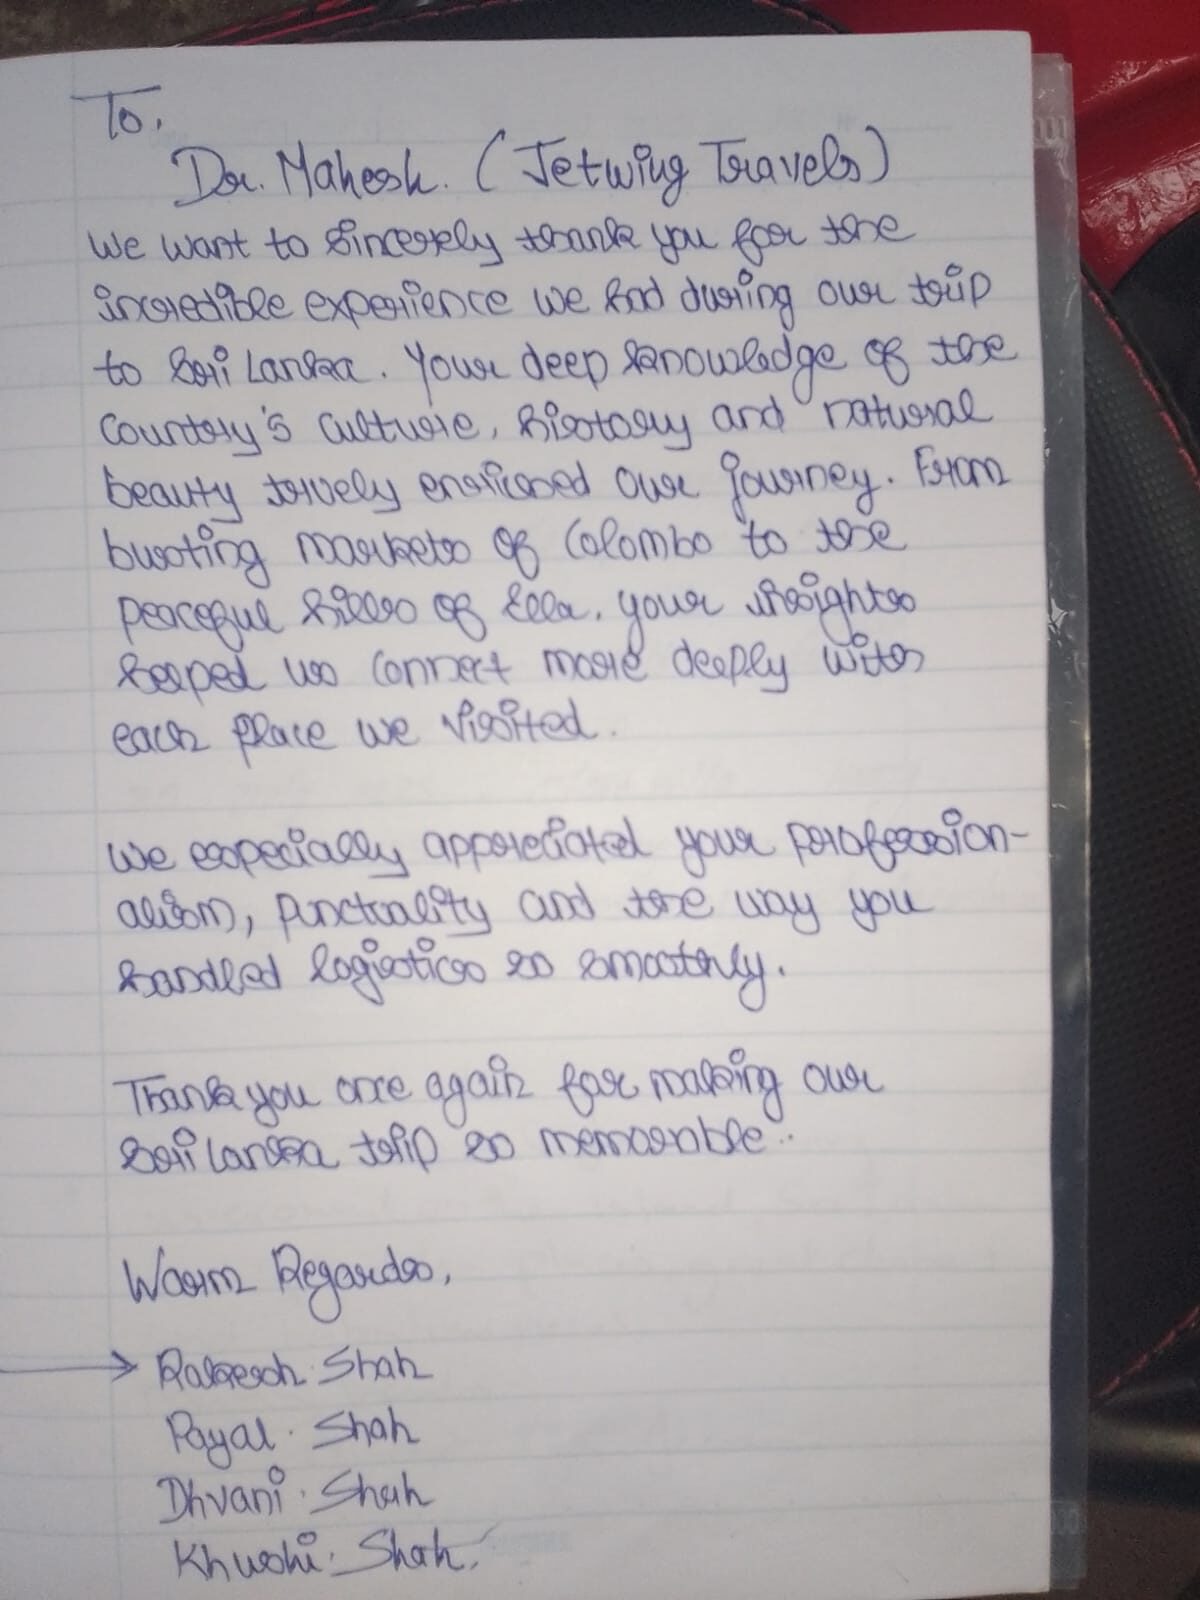 To,
Dr. Mahesh. (Jetwing Travels)
We want to sincerely thank you for the
incredible experience we had during our trip
to Sri Lanka. Your deep knowledge of the
Country's Culture, history and natural
beauty truely enriched our journey. From
busting markets of Colombo to the
peaceful hills of Ella. your insights
helped us connect more deeply with
each place we visited.
We especially appreciated your profession-
alism, punctuality and the way you
handled logistics so smoothly.
Thank you once again for making our
Sri Lanka trip so memorable..
Warm Regards,
→ Rakesh. Shah
Payal. Shah
Dhvani. Shah
Khushi. Shah.